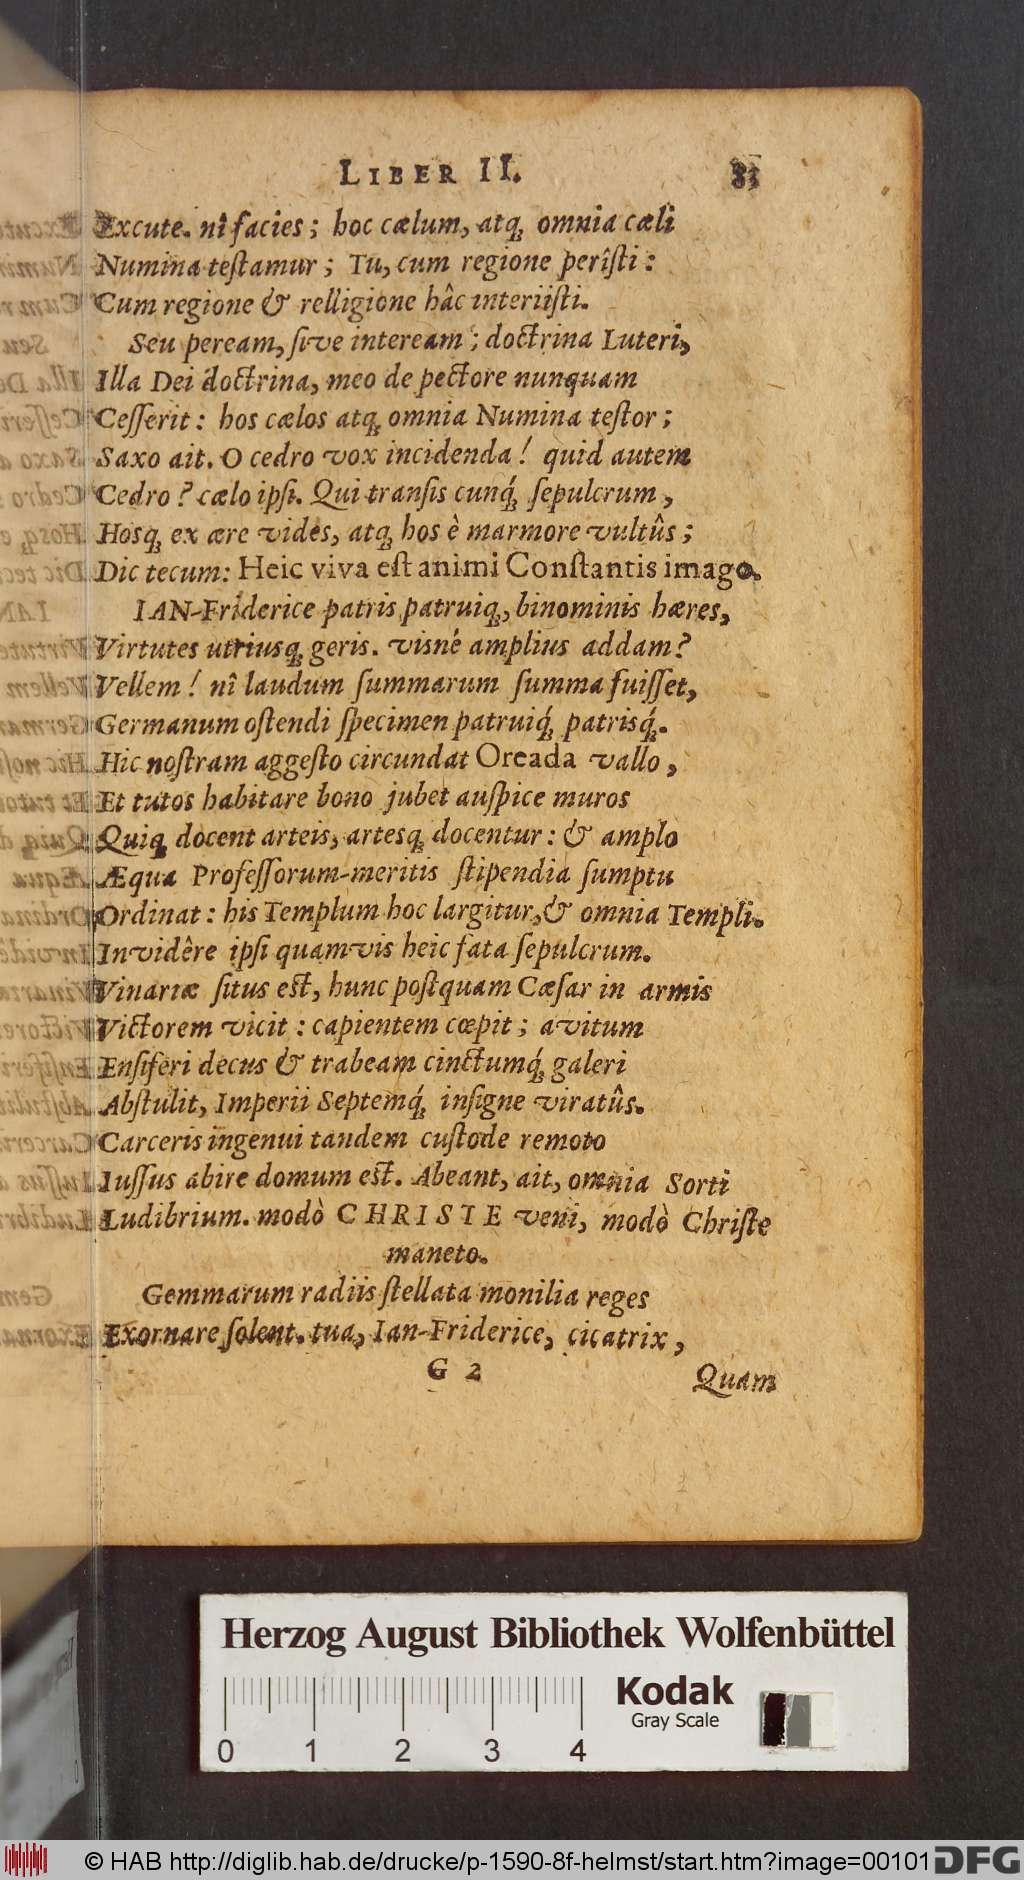 LIBER II.
Excute. nî facies; hoc cælum, atq; omnia cæli
Numina testamur; Tu, cum regione perîsti:
Cum regione & relligione hâc interiisti.
Seu peream, sive inteream; doctrina Luteri,
Illa Dei doctrina, meo de pectore nunquam
Cesserit: hos cælos atq; omnia Numina testor;
Saxo ait. O cedro vox incidenda! quid autem
Cedro? cælo ipsi. Qui transis cunq́; sepulcrum,
Hosq; ex ære vides, atq; hos è marmore vultûs;
Dic tecum: Heic viva est animi Constantis imago.
IAN-Friderice patris patruiq;, binominis hæres,
Virtutes utriusq; geris. visné amplius addam?
Vellem! nî laudum summarum summa fuisset,
Germanum ostendi specimen patruiq́; patrisq́;.
Hic nostram aggesto circundat Oreada vallo,
Et tutos habitare bono jubet auspice muros
Quiq; docent arteis, artesq; docentur: & amplo
Æqua Professorum-meritis stipendia sumptu
Ordinat: his Templum hoc largitur, & omnia Templi.
Invidêre ipsi quamvis heic fata sepulcrum.
Vinariæ situs est, hunc postquam Cæsar in armis
Victorem vicit: capientem cœpit; avitum
Ensiferi decus & trabeam cinctumq́; galeri
Abstulit, Imperii Septemq́; insigne viratûs.
Carceris ingenui tandem custode remoto
Iussus abire domum est. Abeant, ait, omnia Sorti
Ludibrium. modò CHRISTE veni, modò Christe
maneto.
Gemmarum radiis stellata monilia reges
Exornare solent. tua, Ian-Friderice, cicatrix,
G 2
Quam
Herzog August Bibliothek Wolfenbüttel
0 1 2 3 4
Kodak
Gray Scale
© HAB http://diglib.hab.de/drucke/p-1590-8f-helmst/start.htm?image=00101
DFG